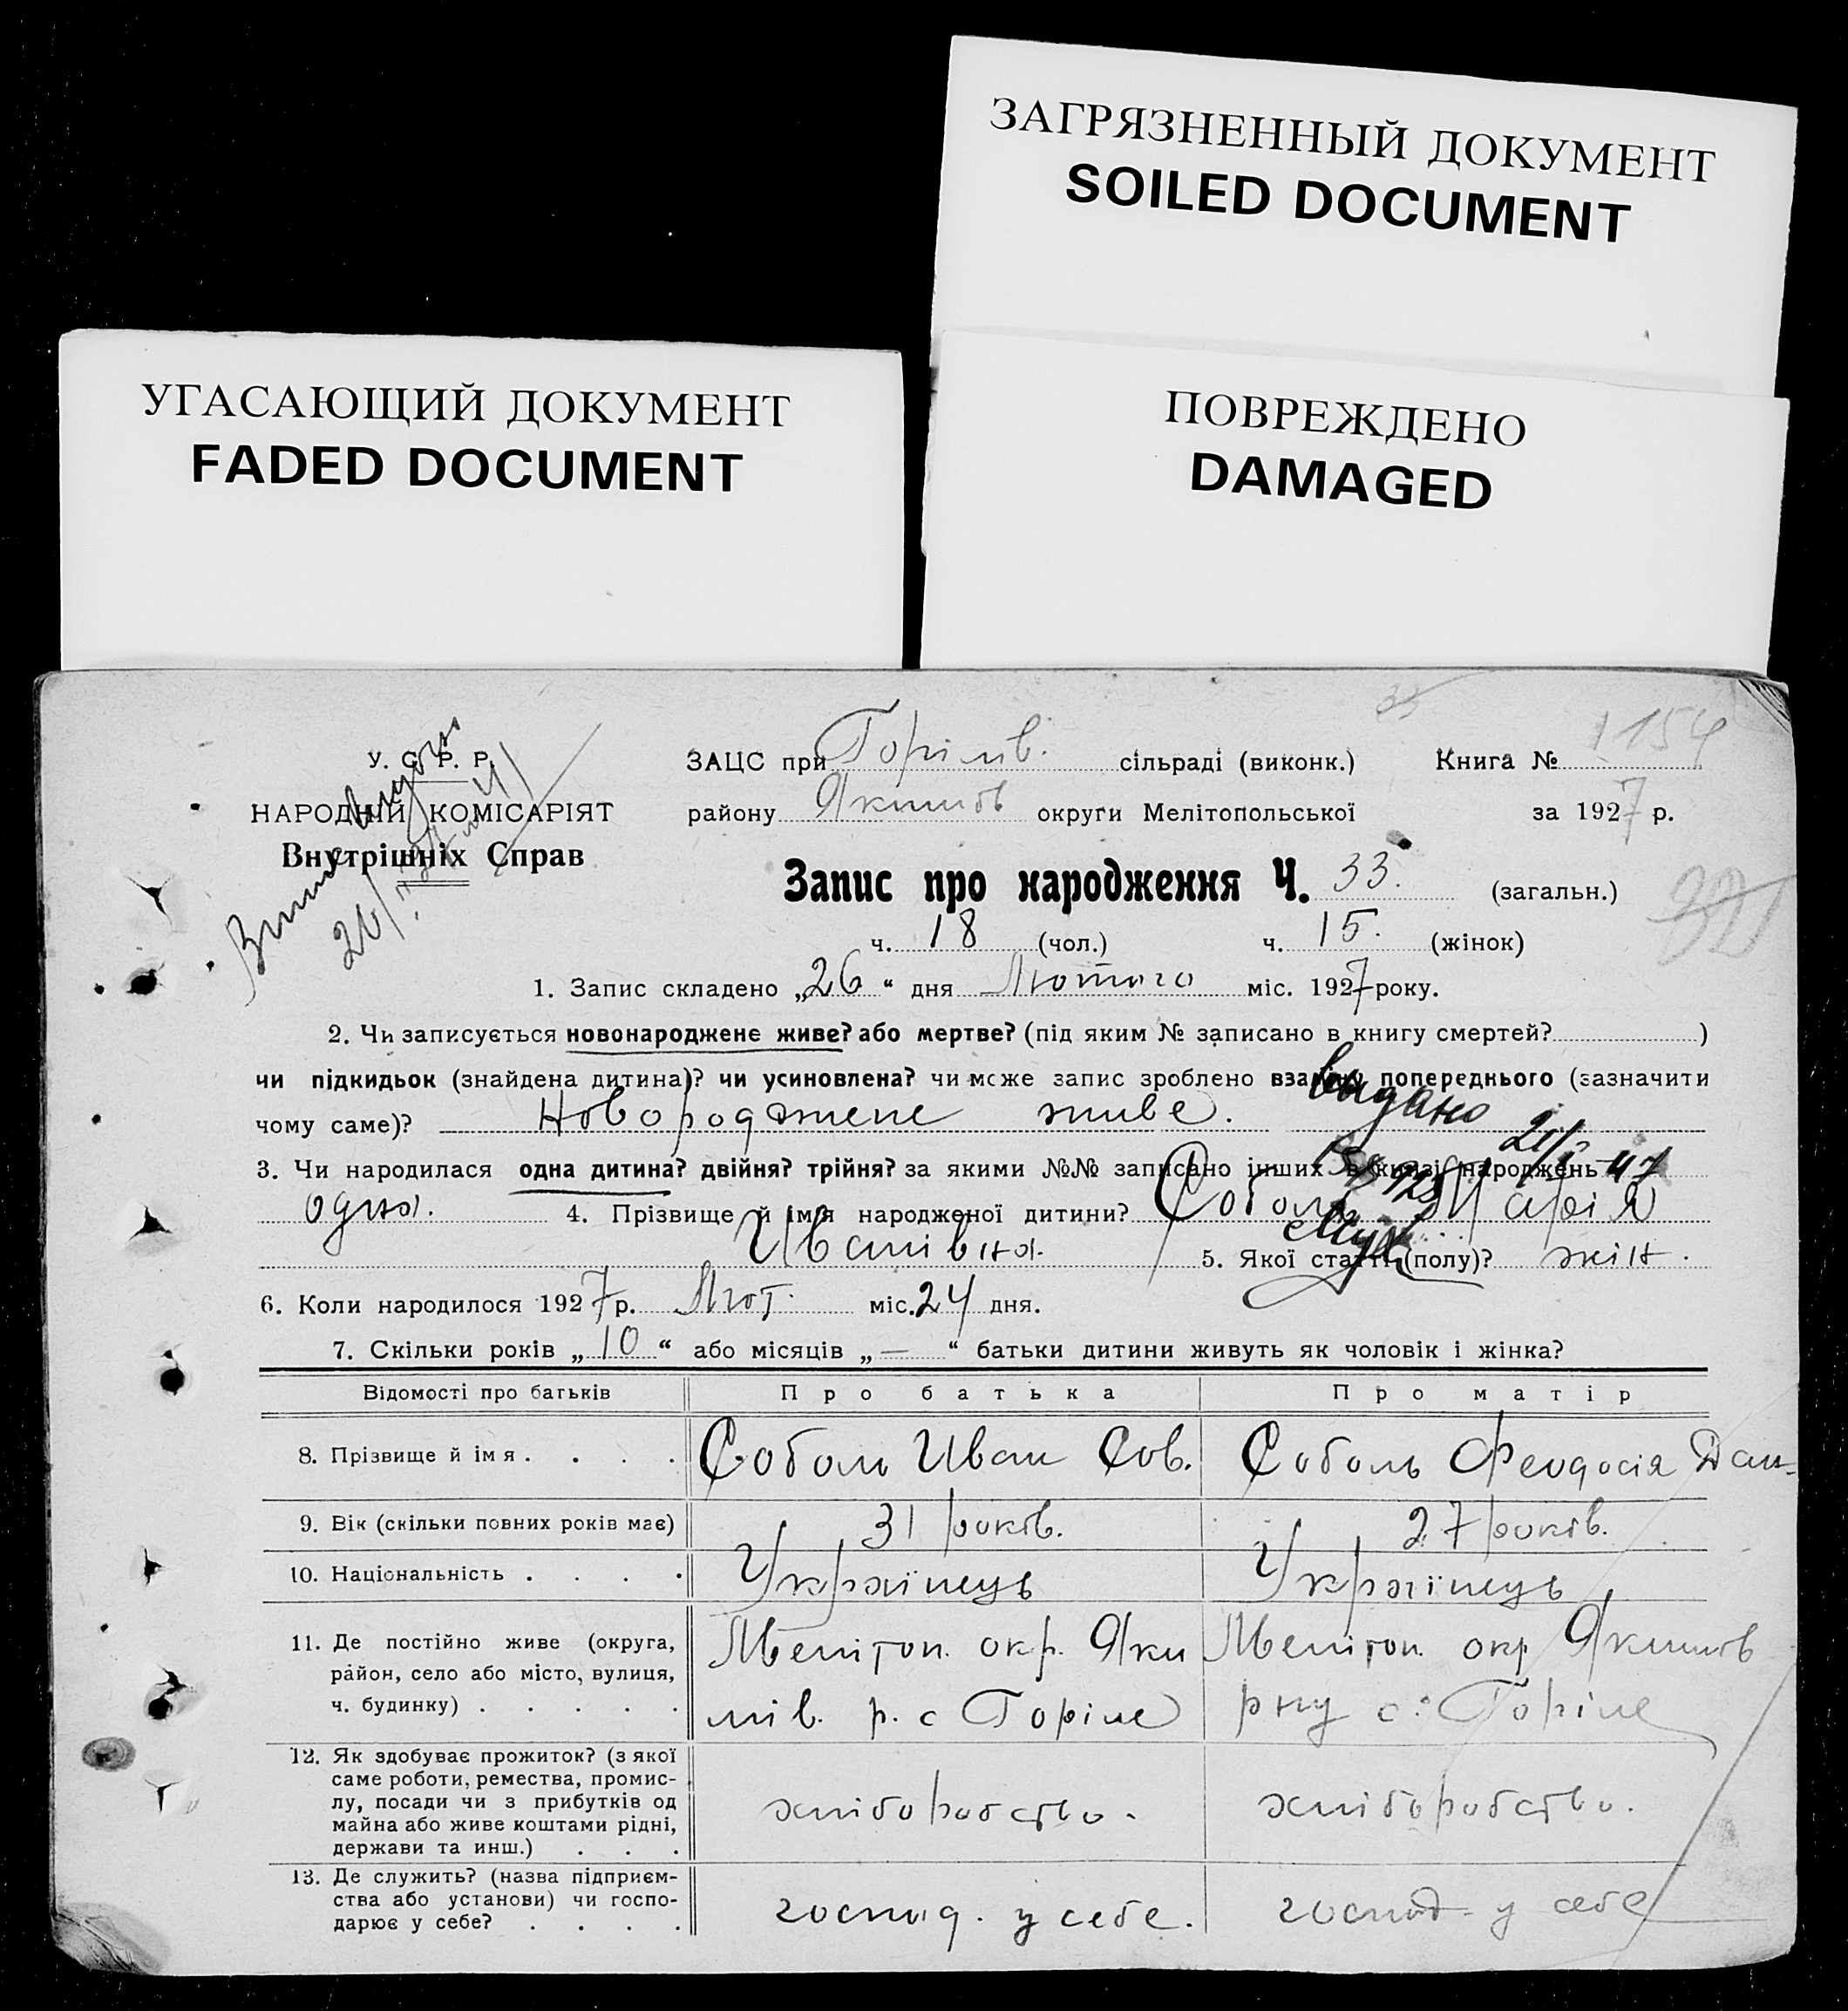 ЗАГРЯЗНЕННЫЙ ДОКУМЕНТ
SOILED DOCUMENT
УГАСАЮЩИЙ ДОКУМЕНТ
FADED DOCUMENT
ПОВРЕЖДЕНО
DAMAGED
У. С. Р. Р.
НАРОДНІЙ КОМІСАРІЯТ
Внутрішніх Справ
ЗАЦС при Горілів. сільраді (виконк.) Книга № 1154
району Якимів округи Мелітопольської за 1927 р.
Запис про народження Ч. 33. (загальн.)
ч. 18 (чол.) ч. 15. (жінок)
1. Запис складено „26“ дня Лютого міс. 1927 року.
2. Чи записується новонароджене живе? або мертве? (під яким № записано в книгу смертей? )
чи підкидьок (знайдена дитина)? чи усиновлена? чи може запис зроблено взамін попереднього (зазначити
чому саме)? Новороджене живе.
выдано
3. Чи народилася одна дитина? двійня? трійня? за якими №№ записано інших в книзі народжень
одна. 4. Прізвище й імя народженої дитини? Соболь Марія
Иванівна. 5. Якої статті (полу)? жін.
6. Коли народилося 1927 р. Лют. міс. 24 дня.
7. Скільки років „10“ або місяців „—“ батьки дитини живуть як чоловік і жінка?
Відомості про батьків Про батька Про матір
8. Прізвище й імя . . . . Соболь Иван Сов. Соболь Феодосія Дан-
9. Вік (скільки повних років має) 31 років. 27 років.
10. Національність . . . . Українець Українець
11. Де постійно живе (округа, район, село або місто, вулиця, ч. будинку) . . . . . Меліτоп. окр. Яки Меліτоп. окр Якимів
мів. р. с Горіле рну с. Горіле
12. Як здобуває прожиток? (з якої
саме роботи, ремества, промис-
лу, посади чи з прибутків од
майна або живе коштами рідні,
держави та инш.) . . . хліборобство. хліборобство.
13. Де служить? (назва підприєм-
ства або установи) чи госпо-
дарює у себе? . . . . господ. у себе. господ- у себе